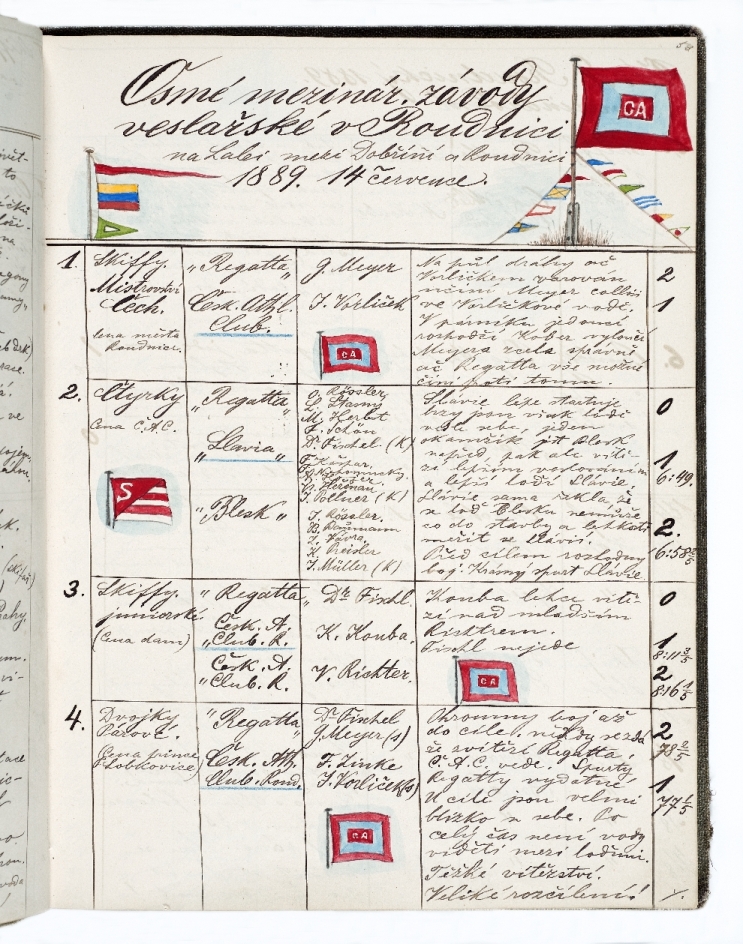 58
Osmé mezinár. závody
veslařské v Roudnici
na Labi mezi Dobříní a Roudnicí
1889. 14 července.
CA
1.
Skiffy.
Mistrovství
Čech.
Cena města
Roudnice.
„Regatta"
Česk. Athl.
Club.
G. Meyer
J. Vorlíček
CA
Na půl dráhy ač
Vorlíčkem varován
Meyer
ve Vorlíčkově vodě.
V párníku jedoucí
rozhodčí Kober vyloučí
Meyera zcela správně
ač Regatta vše možné
činí proti tomu.
2
1
2.
Čtyrky
Cena Č.A.C.
S
„Regatta"
„Slavia"
„Blesk"
O. Rössler
Šťastný
M. Herbst
F. Schön
Dr. Fischel (K)
F. Kašpar
J. Pollner (K)
J. Rössler.
B. Baumann
J. Vávra
K. Preisler
J. Müller (K)
Slavie lépe startuje
brzy jsou však lodě
vedle sebe, jeden
okamžik jest Blesk
napřed, pak ale vítě-
zí lepším veslováním
a lepší lodí Slavie.
Slavie sama řekla že
se loď Blesku nemůže
co do stavby a lehkosti
měřit se Slavií.
Před cílem rozhodný
boj. Krásný sport Slavie
0
1
6:49.
2.
6:58 2/5
3.
Skiffy
juniorské
(Cena dam)
„Regatta"
Česk. A.
„Club. R.
Česk. A.
„Club. R.
Dr. Fischl.
K. Kouba.
V. Richter.
Kouba lehce vítě-
zí nad mladším
Richtrem.
Fischl nejede
CA
0
1
8:11 3/5
2
8:16 1/5
4.
Dvojky
Párové.
Cena prince
z Lobkovice
„Regatta"
Česk. Ath.
Club. Roud.
Dr. Fischel
G. Meyer (s)
F. Zinke
J. Vorlíček (s)
CA
Ohromný boj až
do cíle, někdy se zdá
že zvítězí Regatta.
Č.A.C. vede. Spurty
Regatty vydatné
U cíle jsou velmi
blízko u sebe. Po
celý čas není vody
viděti mezi loďmi.
Těžké vítězství.
Veliké rozčílení!
2
78 2/5
1
77 1/5